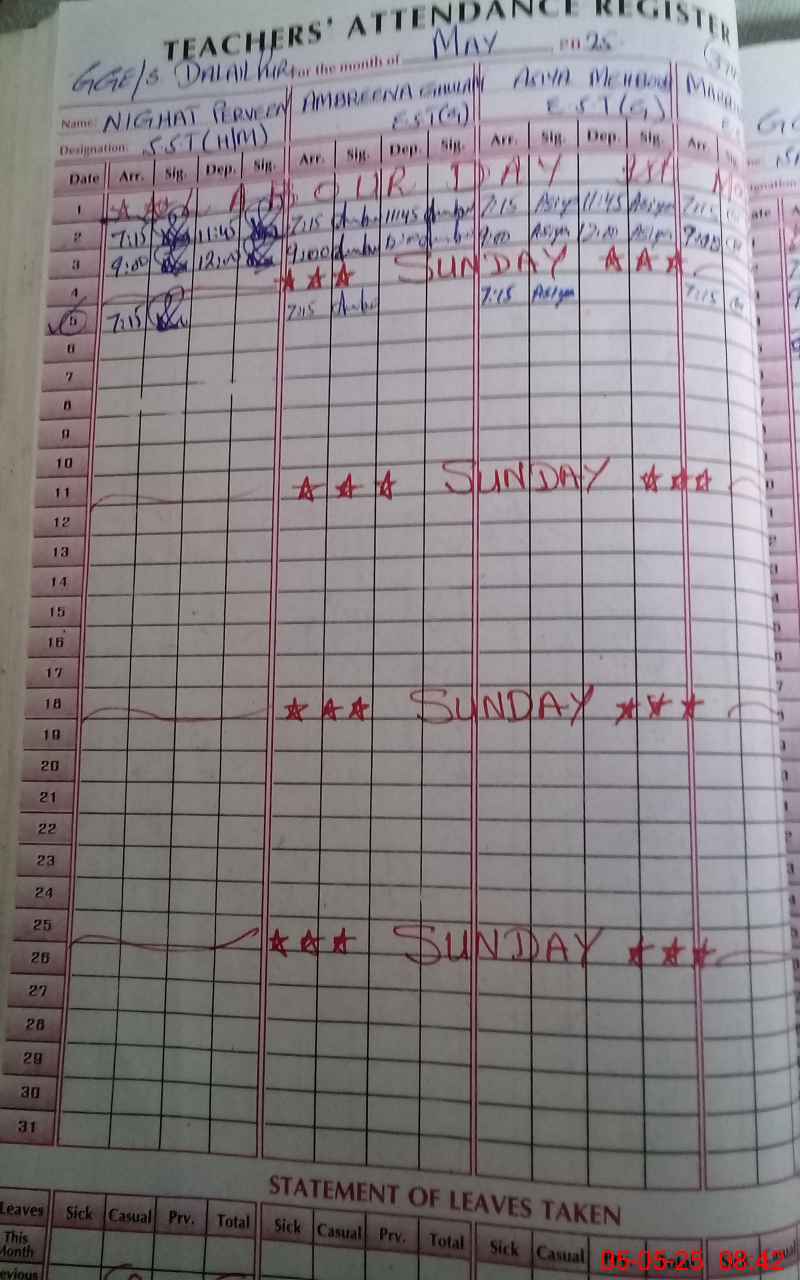 TEACHERS' ATTENDANCE REGISTER
GGE/S DALAILPUR For the month of MAY 2025
Name: NIGHAT PERVEEN AMBREENA ASIYA
Designation: S.S.T (H/M) E.S.T(G) E.S.T(G)
Date Arr. Sig. Dep. Sig. Arr. Sig. Dep. Sig. Arr. Sig. Dep. Sig. Arr.
1 LABOUR DAY 1st May
2 7:15 11:45 7:15 11:45 7:15 Asiya 11:45 Asiya 7:15
3 9:00 12:00 9:00 12:00 9:00 Asiya 12:00 Asiya 9:00
4 ★ ★ ★ SUNDAY ★ ★ ★
5 7:15 7:15 7:15 Asiya 7:15
6
7
8
9
10
11 ★ ★ ★ SUNDAY ★ ★ ★
12
13
14
15
16
17
18 ★ ★ ★ SUNDAY ★ ★ ★
19
20
21
22
23
24
25 ★ ★ ★ SUNDAY ★ ★ ★
26
27
28
29
30
31
STATEMENT OF LEAVES TAKEN
Leaves Sick Casual Prv. Total Sick Casual Prv. Total Sick Casual
This Month
05-05-25 08:42